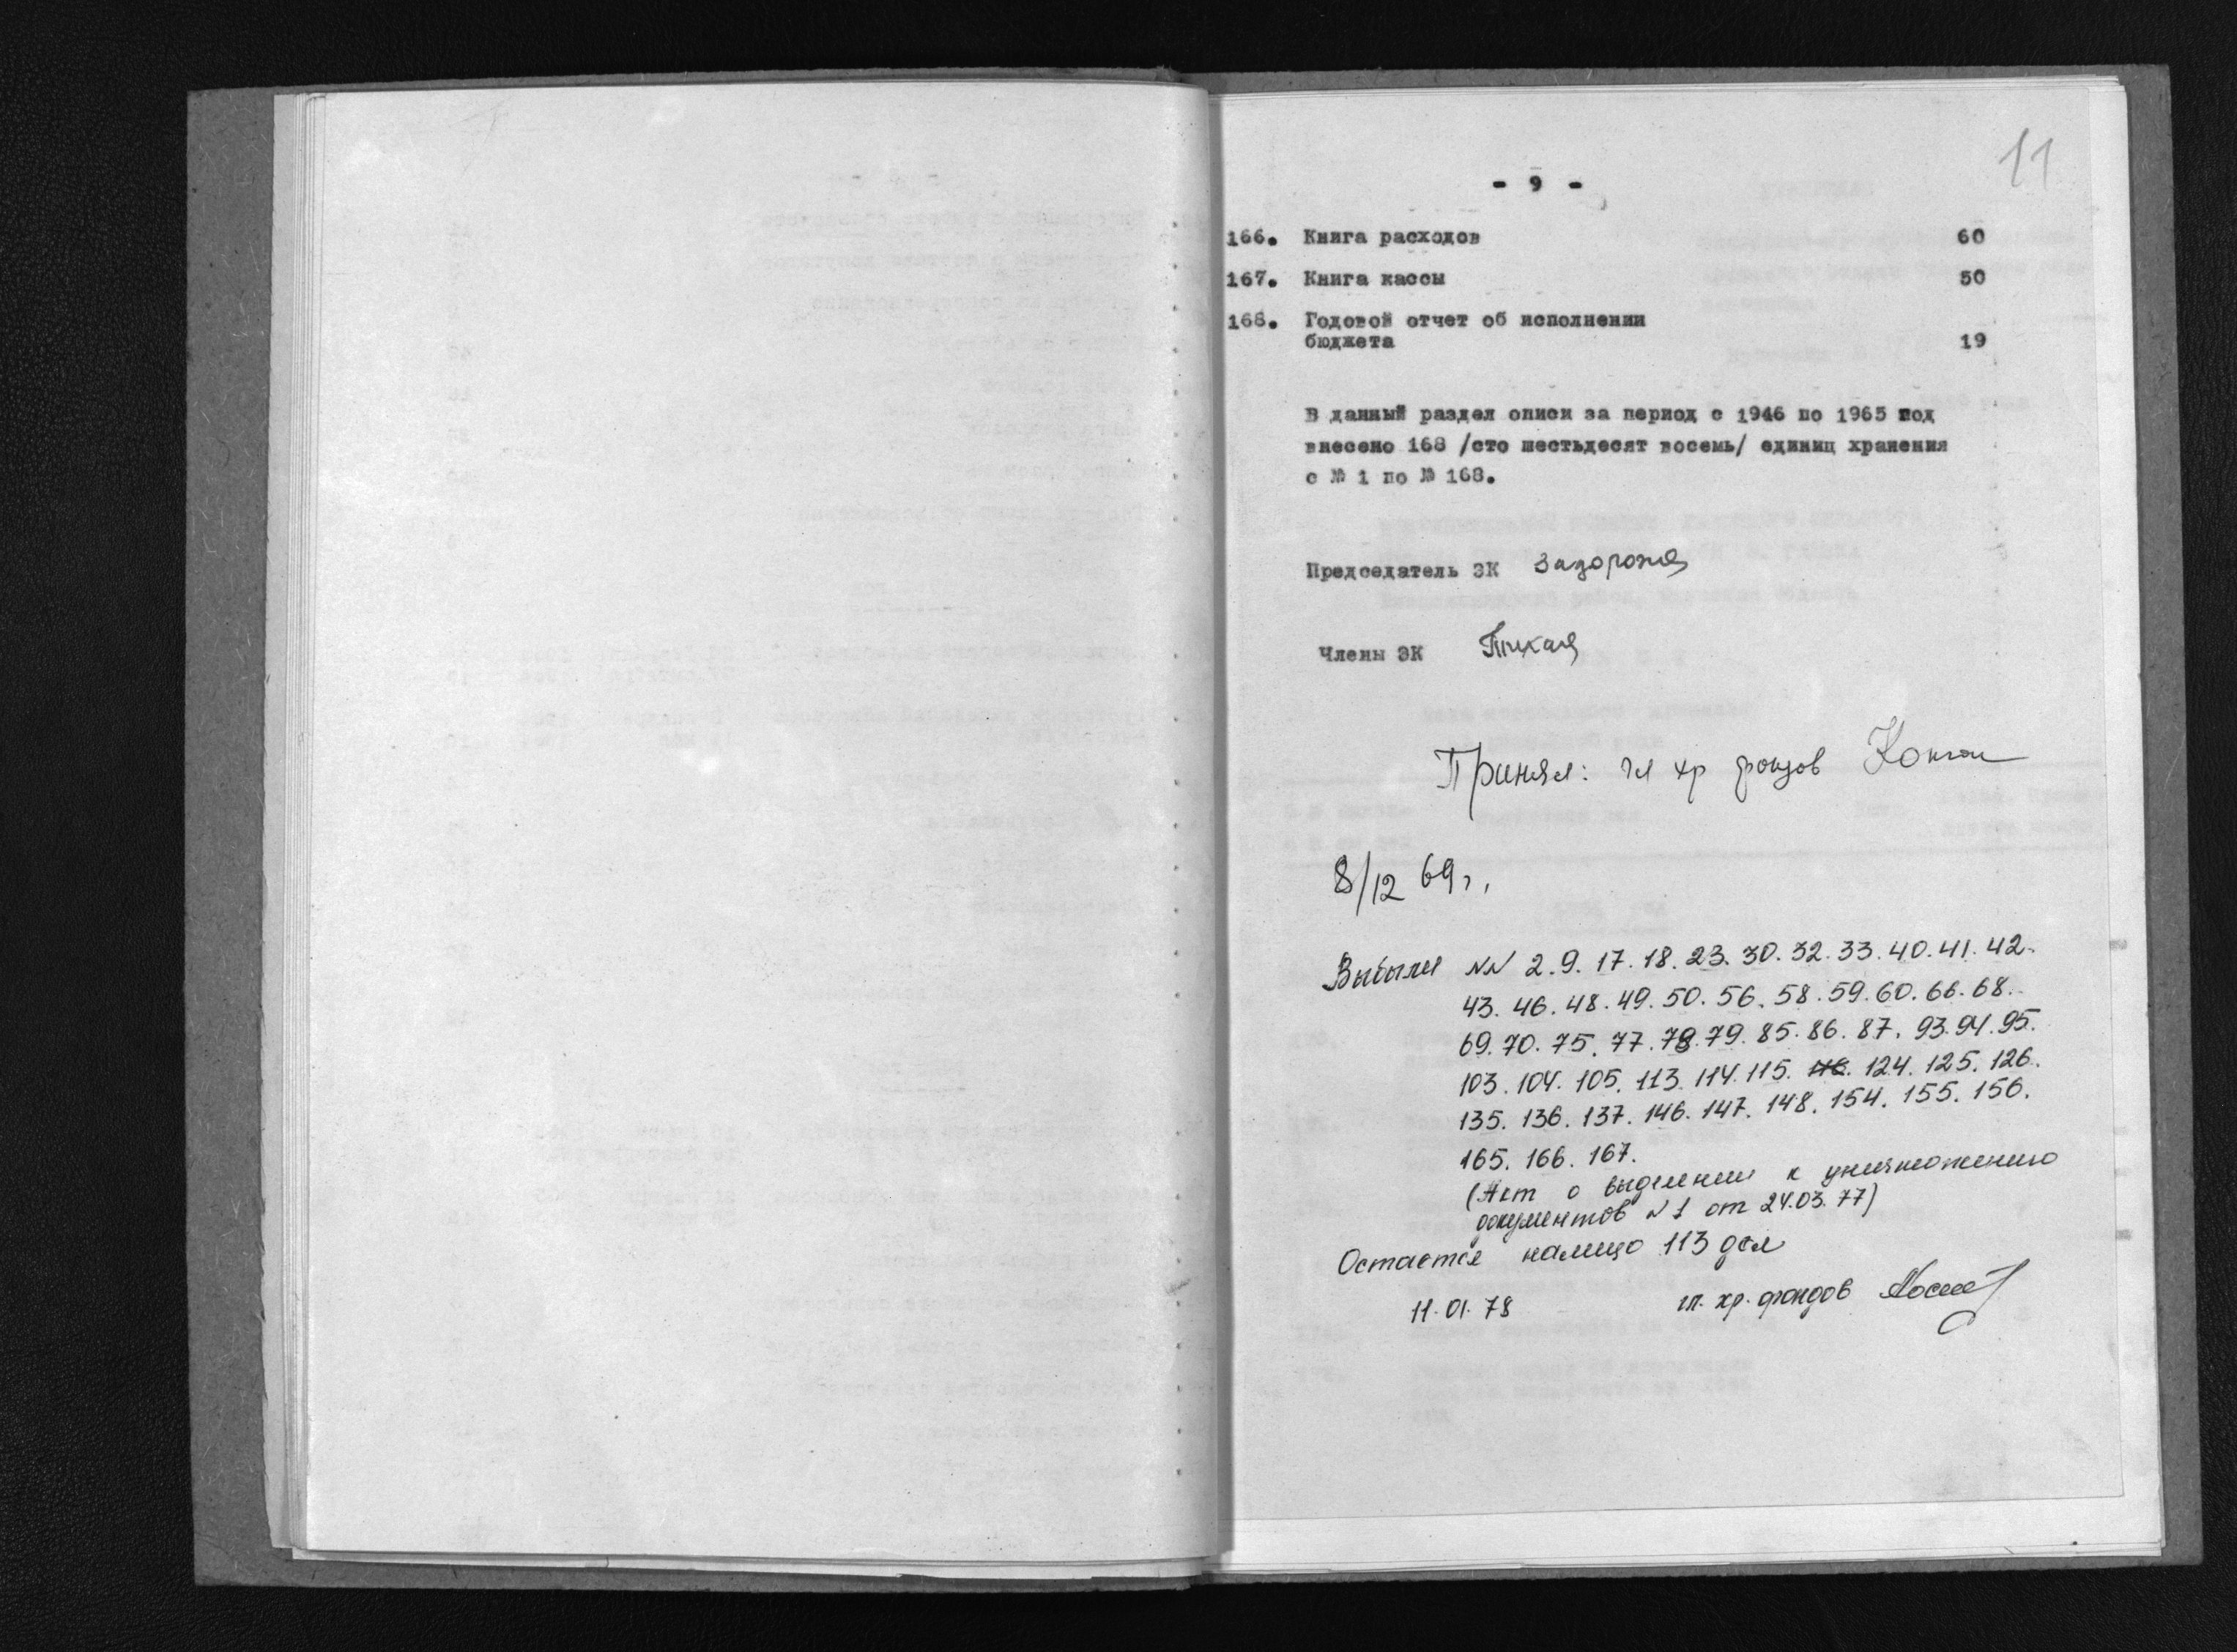 11
- 9 -
166. Книга расходов 60
167. Книга кассы 50
168. Годовой отчет об исполнении
бюджета 19
В данный раздел описи за период с 1946 по 1965 год
внесено 168 /сто шестьдесят восемь/ единиц хранения
с № 1 по № 168.
Председатель ЭК
Члены ЭК
Принял: гл хр фондов
8/12 69г.
Выбыли NN 2.9.17.18.23.30.32.33.40.41.42.
43.46.48.49.50.56.58.59.60.66.68.
69.70.75.77.78.79.85.86.87.93.94.95.
103.104.105.113.114.115. 116. 124.125.126.
135.136.137.146.147.148.154.155.156.
165.166.167.
(Акт о выделении к уничтожению
документов N 1 от 24.03.77)
Остается налицо 113 дел
11.01.78 гл. хр. фондов